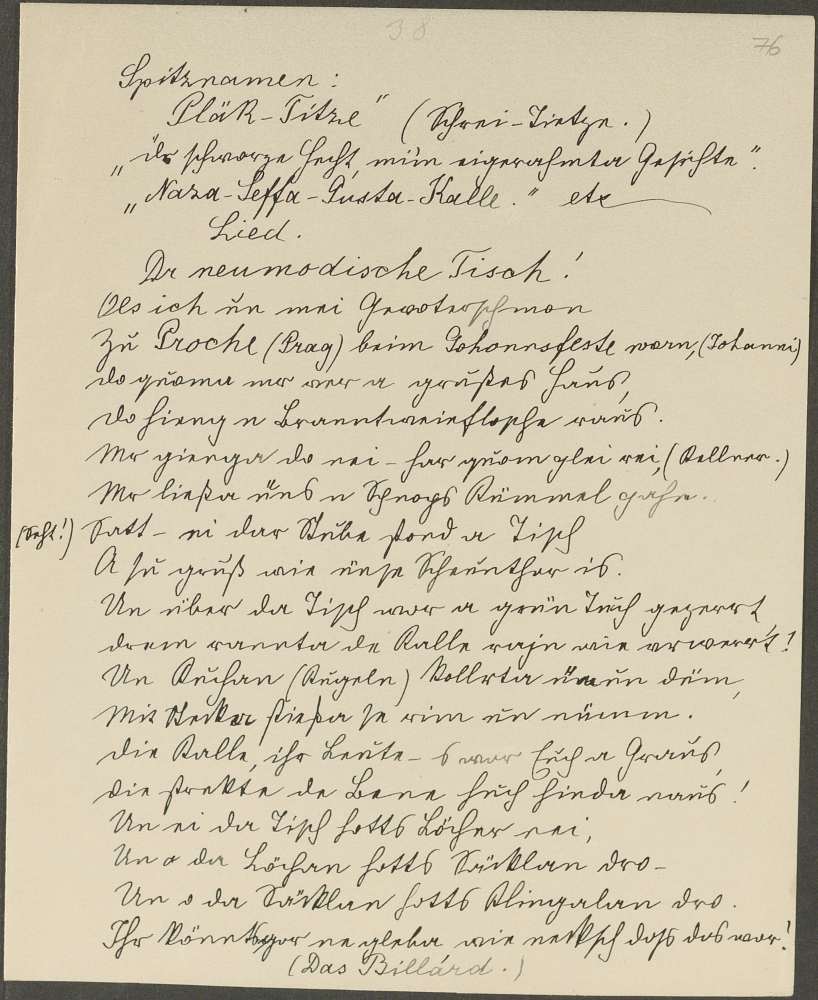 38
76
Spitznamen:
"Pläk-Titze" (Schrei-Tietze.)
„dr schworze Hecht, mit'm eigerahmta Gesichte".
„Naza-Seffa-Gusta-Kalle." etc
Lied.
Dr neumodische Tisch!
Ols ich un mei Gevoterschmon
Zu Proche (Prag) beim Johonnsfeste worn, (Johanni)
do quoma mr ver a grußes Haus,
do hieng n Branntweinflosche raus.
Mr gienga do nei - har quom glei rei, (Kellner.)
Mr ließa uns n Schnops Kümmel gahn.
(Seht!) Satt - ei dar Stube stond a Tisch
A su gruß wie unse Scheunthor is.
Un über da Tisch wor a grün Tuch gezerrt
drem rannta de Kalle rajn wie verwerrt!
Un Kuchan (Kugeln) kollrta um un düm,
Mit Stecka stießa se rim un nümm.
Die Kalle, ihr Leute - s wor Euch a Graus,
die strekte de Bene huch hinda naus!
Un ei da Tisch hotts Löcher nei,
Un o da Löchan hotts Säcklan dro-
Un o da Säcklan hotts Klingalan dro.
Ihr könnt gor ne gleba wie necksch doss dos wor!
(Das Billard.)